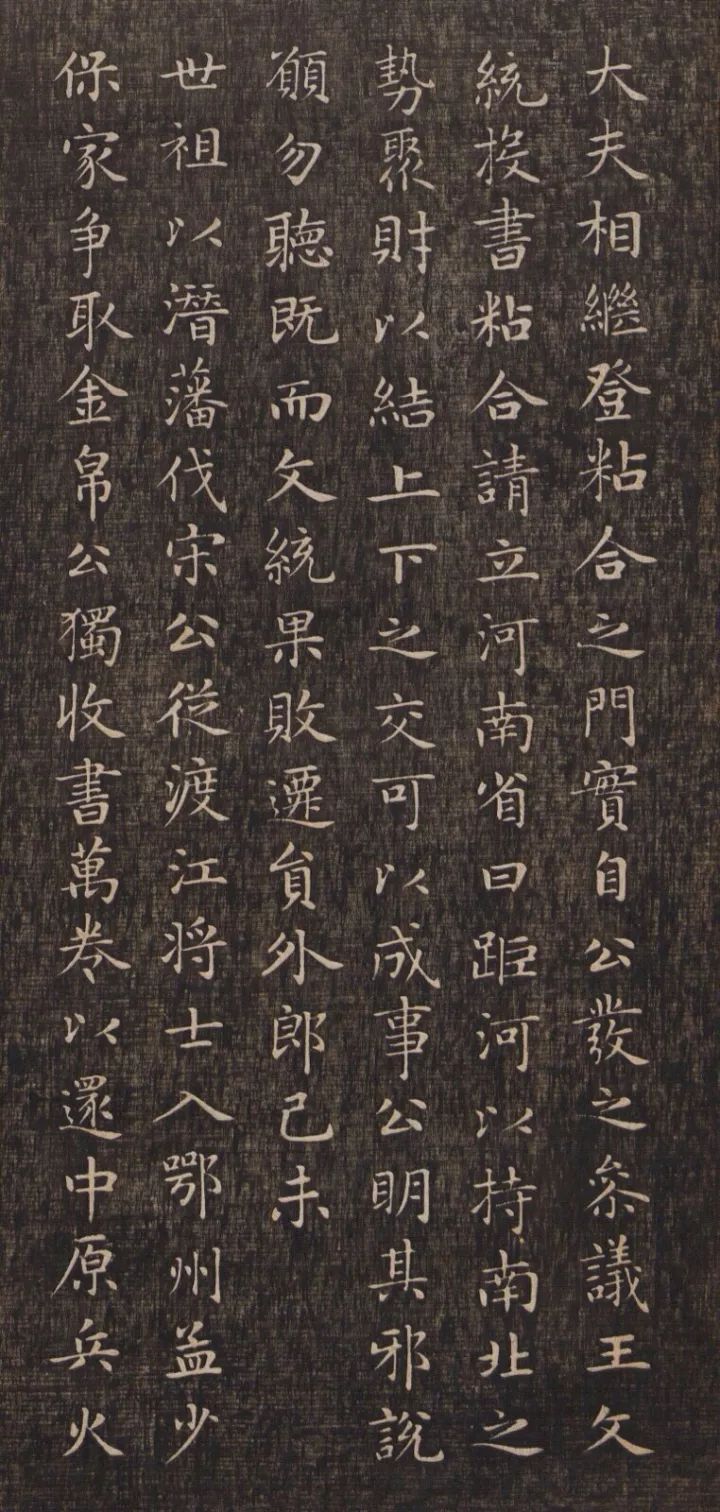 大夫相繼登粘合之門實自公發之叅議王文
統投書粘合請立河南省曰距河以持南北之
勢聚財以結上下之交可以成事公明其邪說
願勿聽既而文統果敗遷負外郎己未
世祖以潛藩伐宋公從渡江将士入鄂州孟少
保家争取金帛公獨收書萬卷以還中原兵火